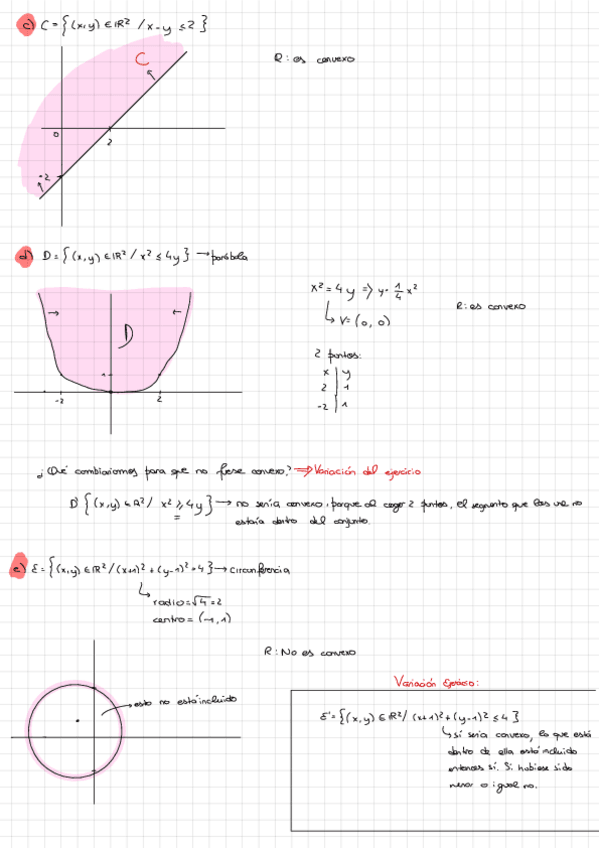 c) C = { (x,y) ∈ IR² / x-y ≤ 2 }
C
R: es convexo
0
2
-2
d) D = { (x,y) ∈ IR² / x² ≤ 4y } → parábola
x² = 4y => y = 1/4 x²
R: es convexo
↳ V = (0, 0)
D
2 puntos:
x | y
2 | 1
-2 | 1
1
-2
2
¿Qué cambiaríamos para que no fuese convexo? => Variación del ejercicio
D' { (x,y) ∈ R² / x² ≥ 4y } → no sería convexo, porque al coger 2 puntos, el segmento que los une no
estaría dentro del conjunto.
e) E = { (x,y) ∈ IR² / (x+1)² + (y-1)² = 4 } → circunferencia
↳ radio = √4 = 2
centro = (-1, 1)
R: No es convexo
Variación Ejercicio:
→ esto no está incluido
E' = { (x,y) ∈ IR² / (x+1)² + (y-1)² ≤ 4 }
↳ sí sería convexo, lo que está
dentro de ella está incluido
entonces sí. Si hubiese sido
menor o igual no.